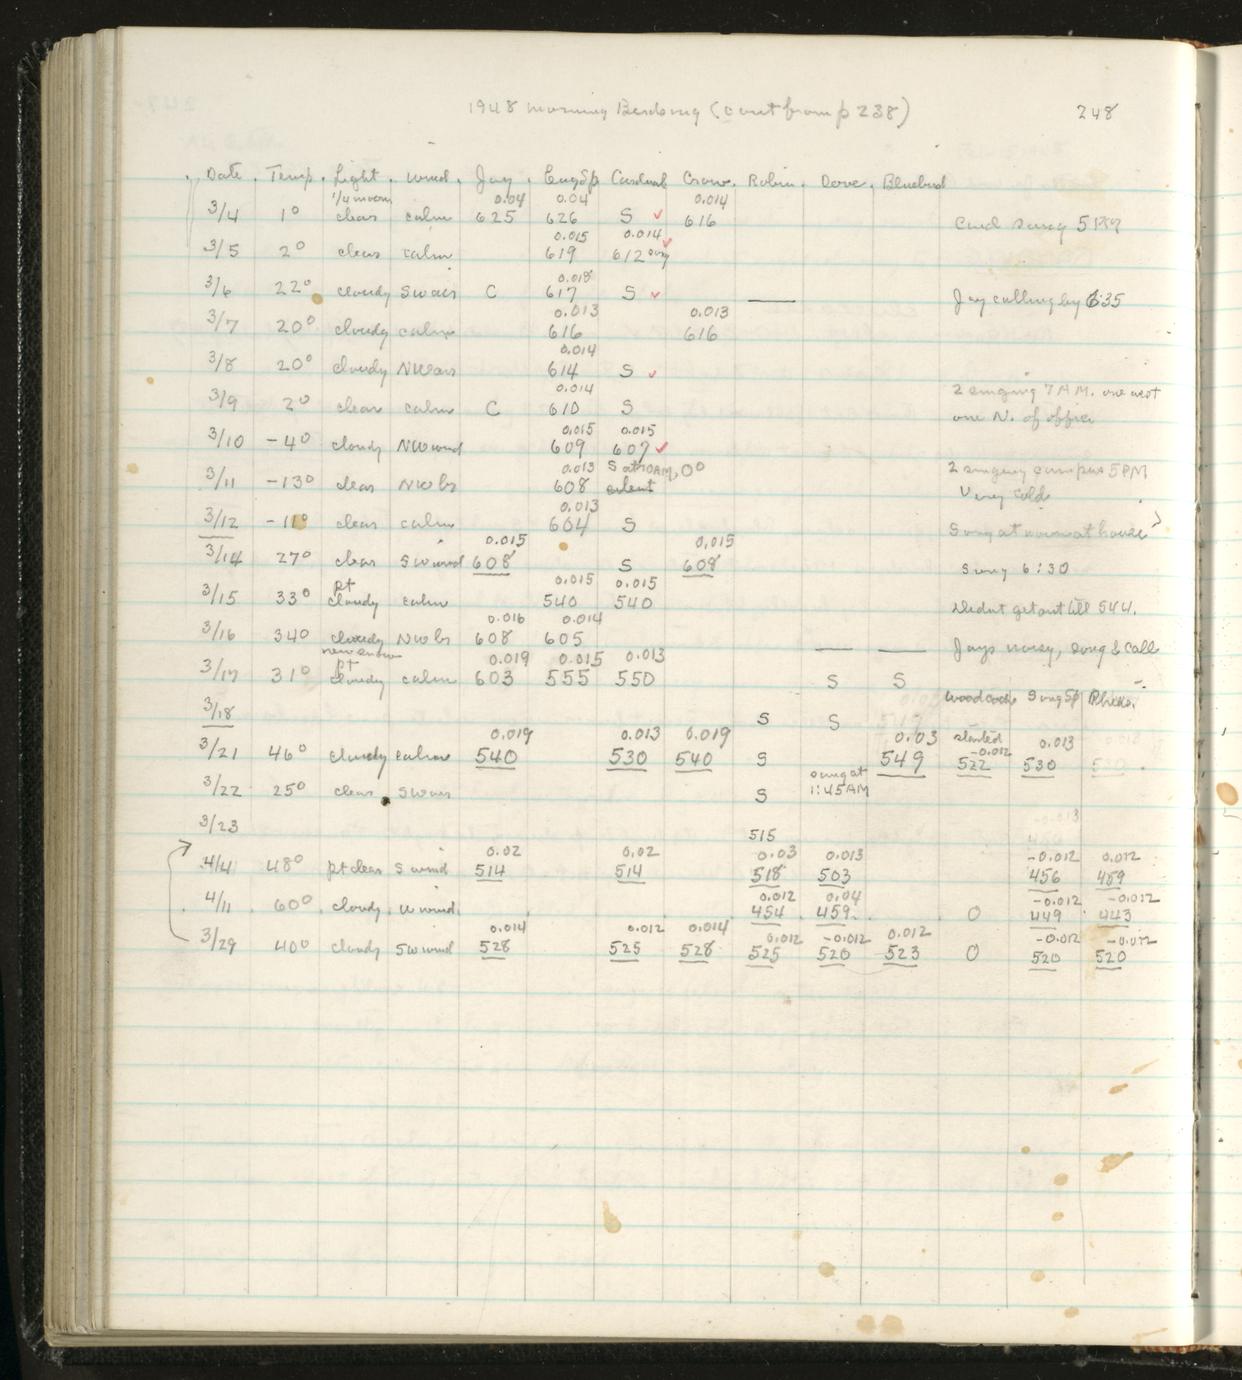 1948 Morning Birdsong (cont from p 238) 248
Date Temp. Light Wind Jay EngSp Cardinal Crow Robin Dove Bluebird
1/4 moon 0.04 0.04 0.014
3/4 1° clear calm 625 626 S ✓ 616 Card sang 5 PM
0.015 0.014 ✓
3/5 2° clear calm 619 612 only
0.018
3/6 22° cloudy SW air C 617 S ✓ — Jay calling by 6:35
0.013 0.013
3/7 20° cloudy calm 616 616
0.014
3/8 20° cloudy NW air 614 S ✓
0.014 2 singing 7 AM. one west
3/9 2° clear calm C 610 S one N. of office
0.015 0.015
3/10 -4° cloudy NW wind 609 607 ✓
0.013 S at 10 AM, 0° 2 singing campus 5 PM
3/11 -13° clear NW br 608 silent Very cold
0.013
3/12 -11° clear calm 604 S Song at noon at house
0.015 0.015
3/14 27° clear SW wind 608 S 608 Sung 6:30
pt 0.015 0.015
3/15 33° cloudy calm 540 540 Didnt get out till 544.
0.016 0.014
3/16 34° cloudy NW br 608 605 — — Jays noisy, song & call
new snow
pt 0.019 0.015 0.013
3/17 31° cloudy calm 603 555 550 S S
Woodcock SongSp Phebe.
3/18 S S
0.019 0.013 0.019 0.03 started -0.012 0.013
3/21 46° cloudy calm 540 530 540 S 549 522 530
sung at
3/22 25° clear SW air S 1:45 AM
3/23 515
0.02 0.02 0.03 0.013 -0.012 0.012
4/4 48° pt clear S wind 514 514 518 503 456 459
0.012 0.04 -0.012 -0.012
4/11 60° cloudy W wind 454 459 0 449 443
0.014 0.012 0.014 0.012 -0.012 0.012 -0.012 -0.012
3/29 40° cloudy SW wind 528 525 528 525 520 523 0 520 520